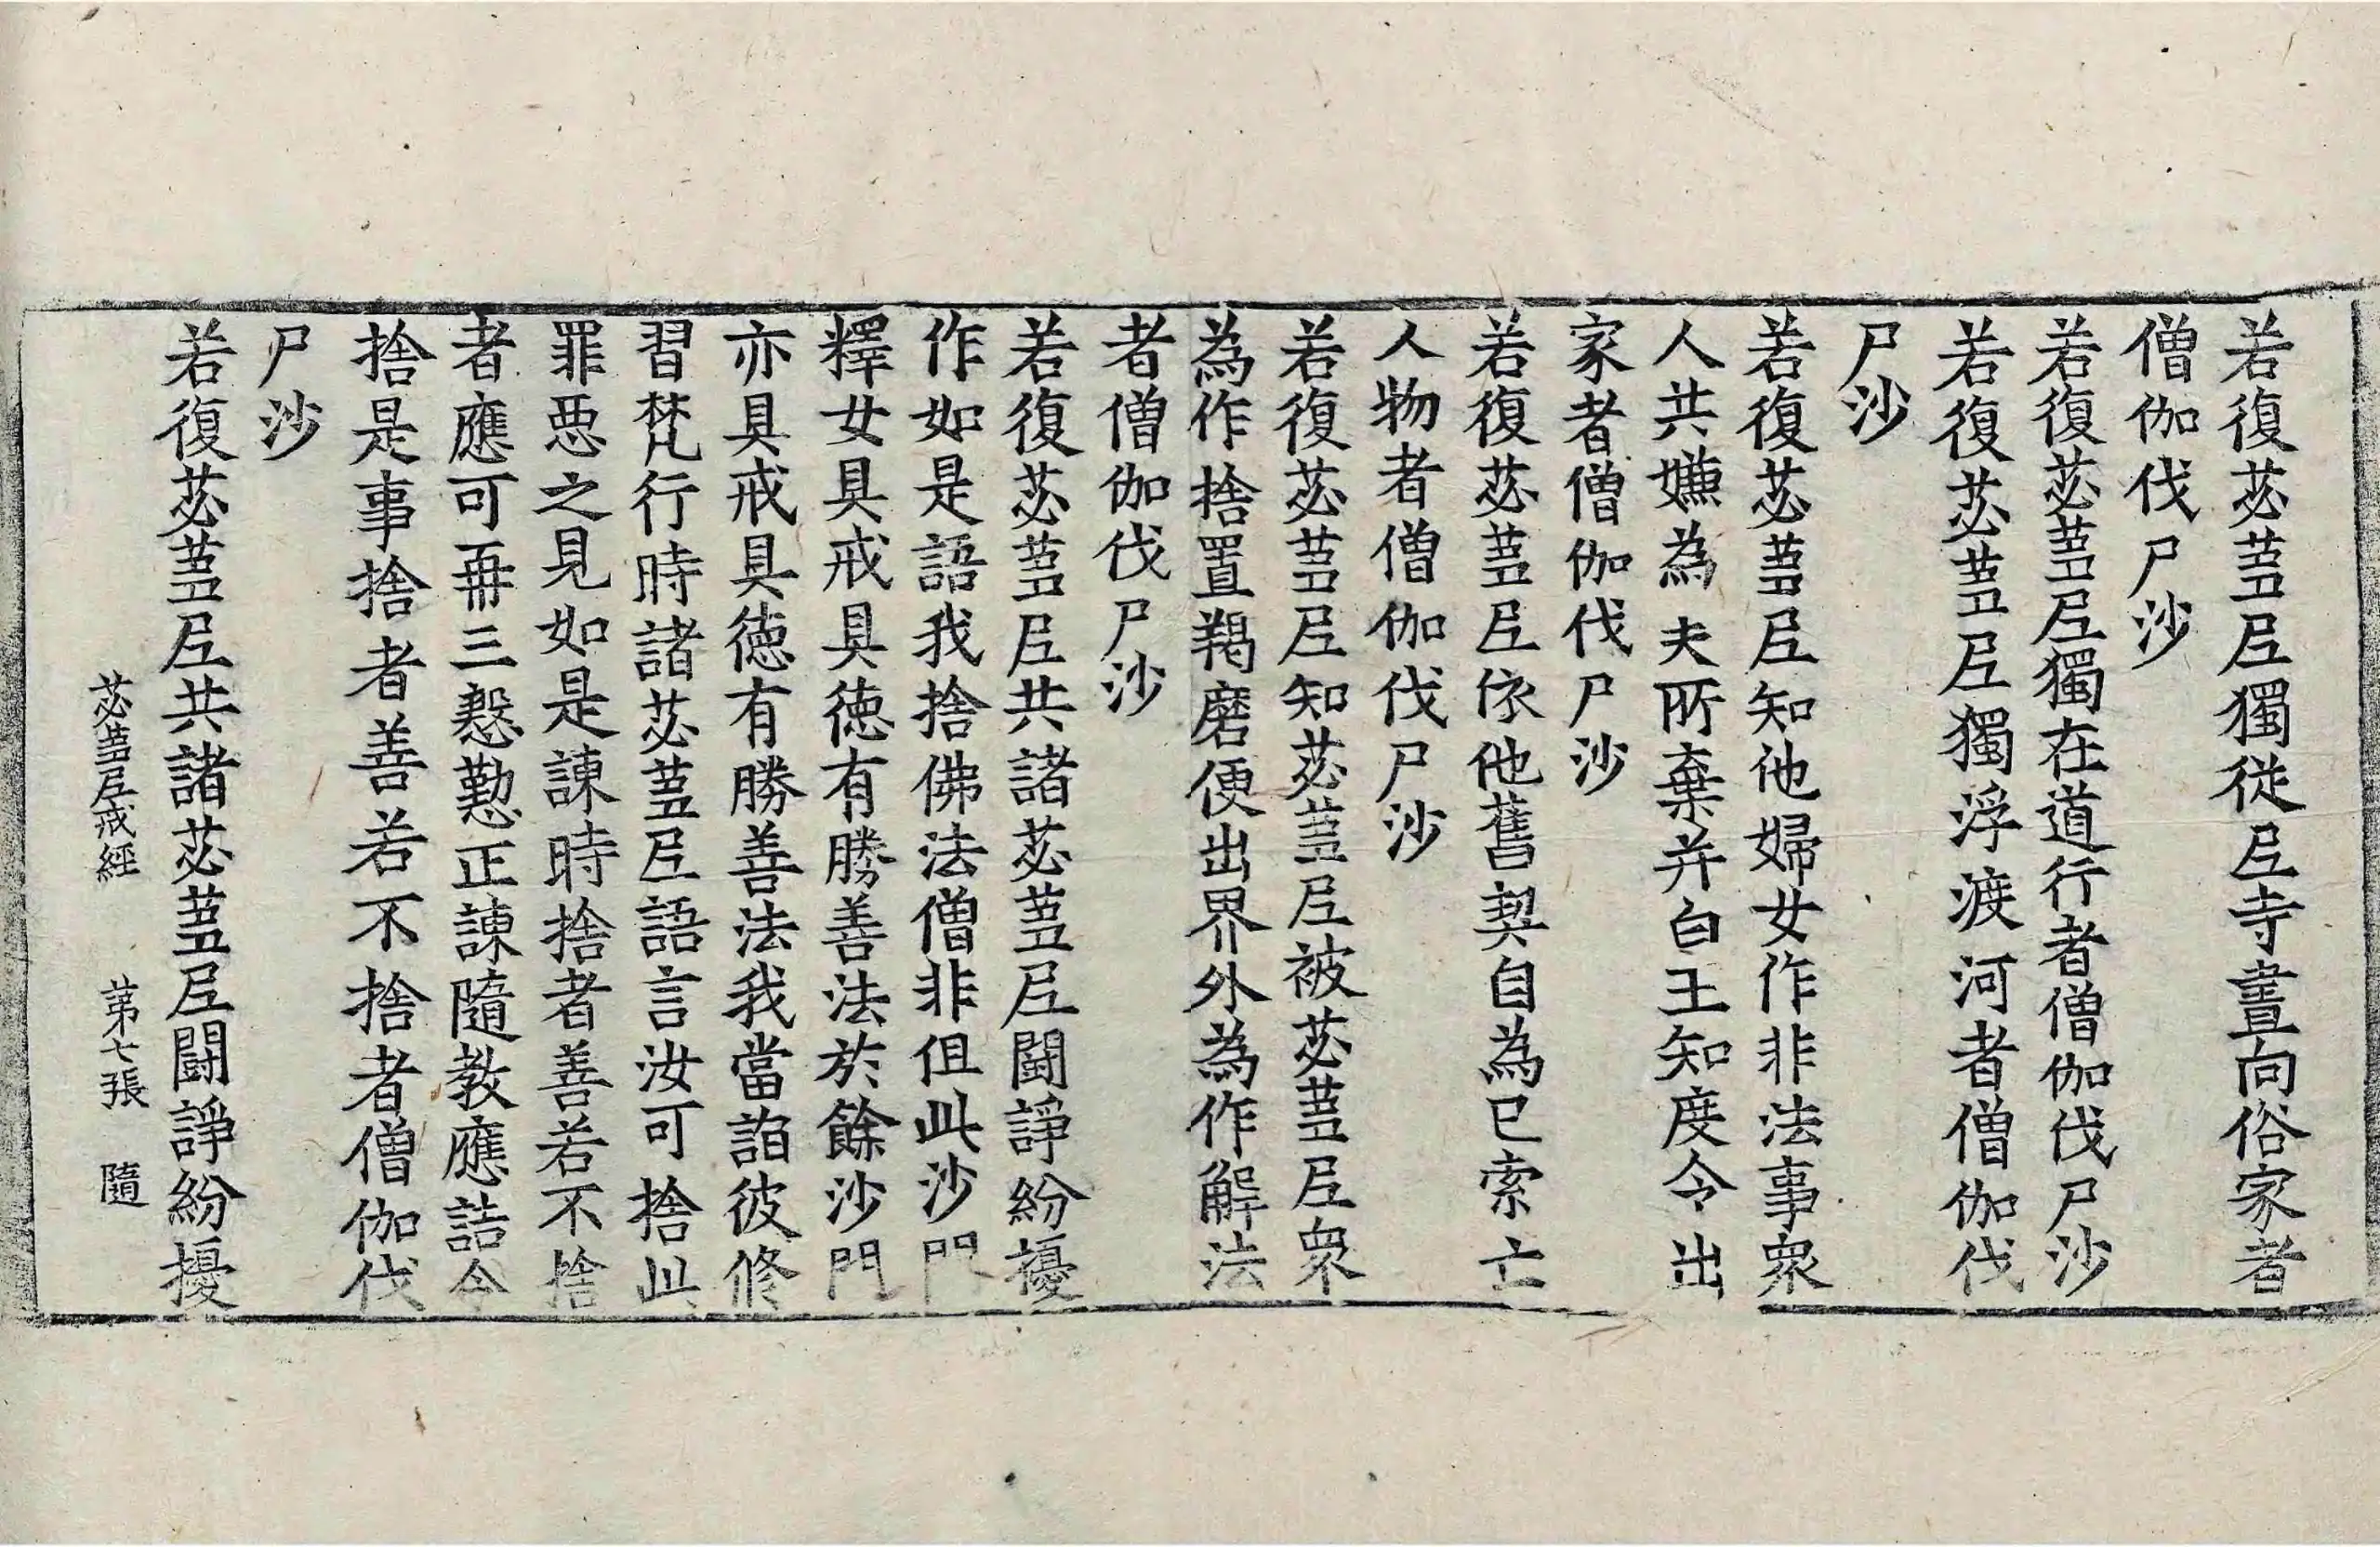 若復苾蒭尼獨從尼寺晝向俗家者
僧伽伐尸沙
若復苾蒭尼獨在道行者僧伽伐尸沙
若復苾蒭尼獨浮渡河者僧伽伐
尸沙
若復苾蒭尼知他婦女作非法事衆
人共嫌為夫所棄并白王知度令出
家者僧伽伐尸沙
若復苾蒭尼依他舊契自為已索亡
人物者僧伽伐尸沙
若復苾蒭尼知苾蒭尼被苾蒭尼衆
為作捨置羯磨便出界外為作解法
者僧伽伐尸沙
若復苾蒭尼共諸苾蒭尼鬪諍紛擾
作如是語我捨佛法僧非但此沙門
釋女具戒具德有勝善法於餘沙門
亦具戒具德有勝善法我當詣彼修
習梵行時諸苾蒭尼語言汝可捨此
罪惡之見如是諫時捨者善若不捨
者應可再三慇懃正諫隨教應詰令
捨是事捨者善若不捨者僧伽伐
尸沙
若復苾蒭尼共諸苾蒭尼鬪諍紛擾
苾蒭尼戒經 第七張 隨